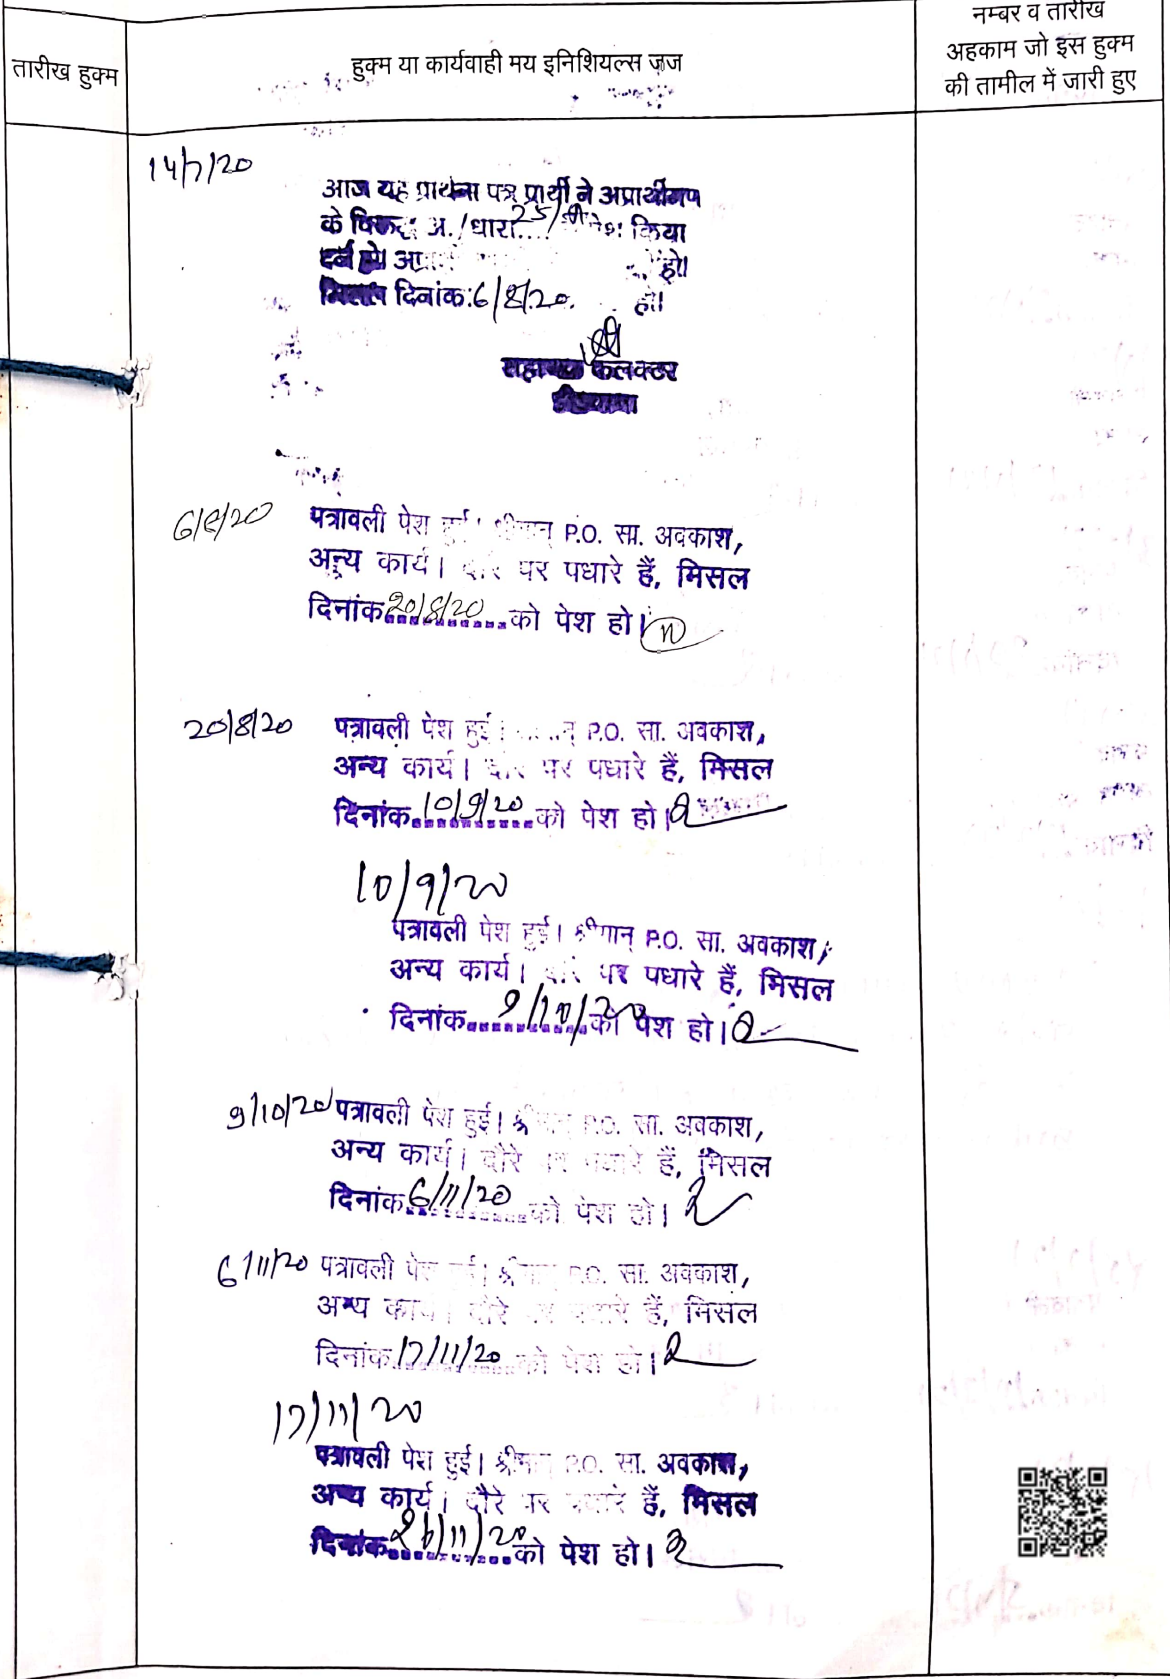 तारीख हुक्म
हुक्म या कार्यवाही मय इनिशियल्स जज
नम्बर व तारीख
अहकाम जो इस हुक्म
की तामील में जारी हुए
14/7/20
आज यह प्रार्थना पत्र प्रार्थी ने अप्रार्थीगण
के विरूद्ध अ./धारा 25/ पेश किया
हो।
मिसल दिनांक:6/8/20. हो।
सहायक कलक्टर
6/8/20
पत्रावली पेश हुई। श्रीमान् P.O. सा. अवकाश,
अन्य कार्य। दौरे पर पधारे हैं, मिसल
दिनांक 20/8/20 को पेश हो।
20/8/20
पत्रावली पेश हुई। श्रीमान् P.O. सा. अवकाश,
अन्य कार्य। दौरे पर पधारे हैं, मिसल
दिनांक 10/9/20 को पेश हो।
10/9/20
पत्रावली पेश हुई। श्रीमान् P.O. सा. अवकाश,
अन्य कार्य। दौरे पर पधारे हैं, मिसल
दिनांक 9/10/20 को पेश हो।
9/10/20 पत्रावली पेश हुई। श्रीमान् P.O. सा. अवकाश,
अन्य कार्य। दौरे पर पधारे हैं, मिसल
दिनांक 6/11/20 को पेश हो।
6/11/20 पत्रावली पेश हुई। श्रीमान् P.O. सा. अवकाश,
अन्य कार्य। दौरे पर पधारे हैं, मिसल
दिनांक 17/11/20 को पेश हो।
17/11/20
पत्रावली पेश हुई। श्रीमान् P.O. सा. अवकाश,
अन्य कार्य। दौरे पर पधारे हैं, मिसल
दिनांक 26/11/20 को पेश हो।